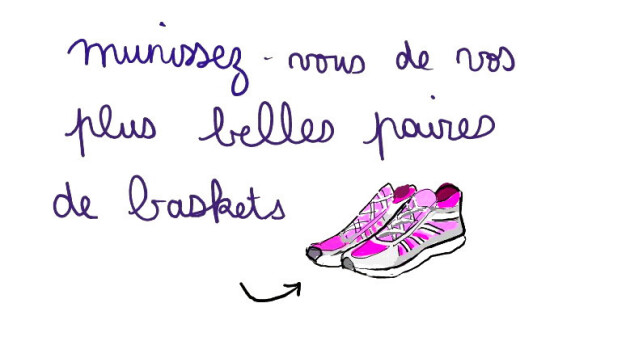 munissez-vous de vos
plus belles paires
de baskets